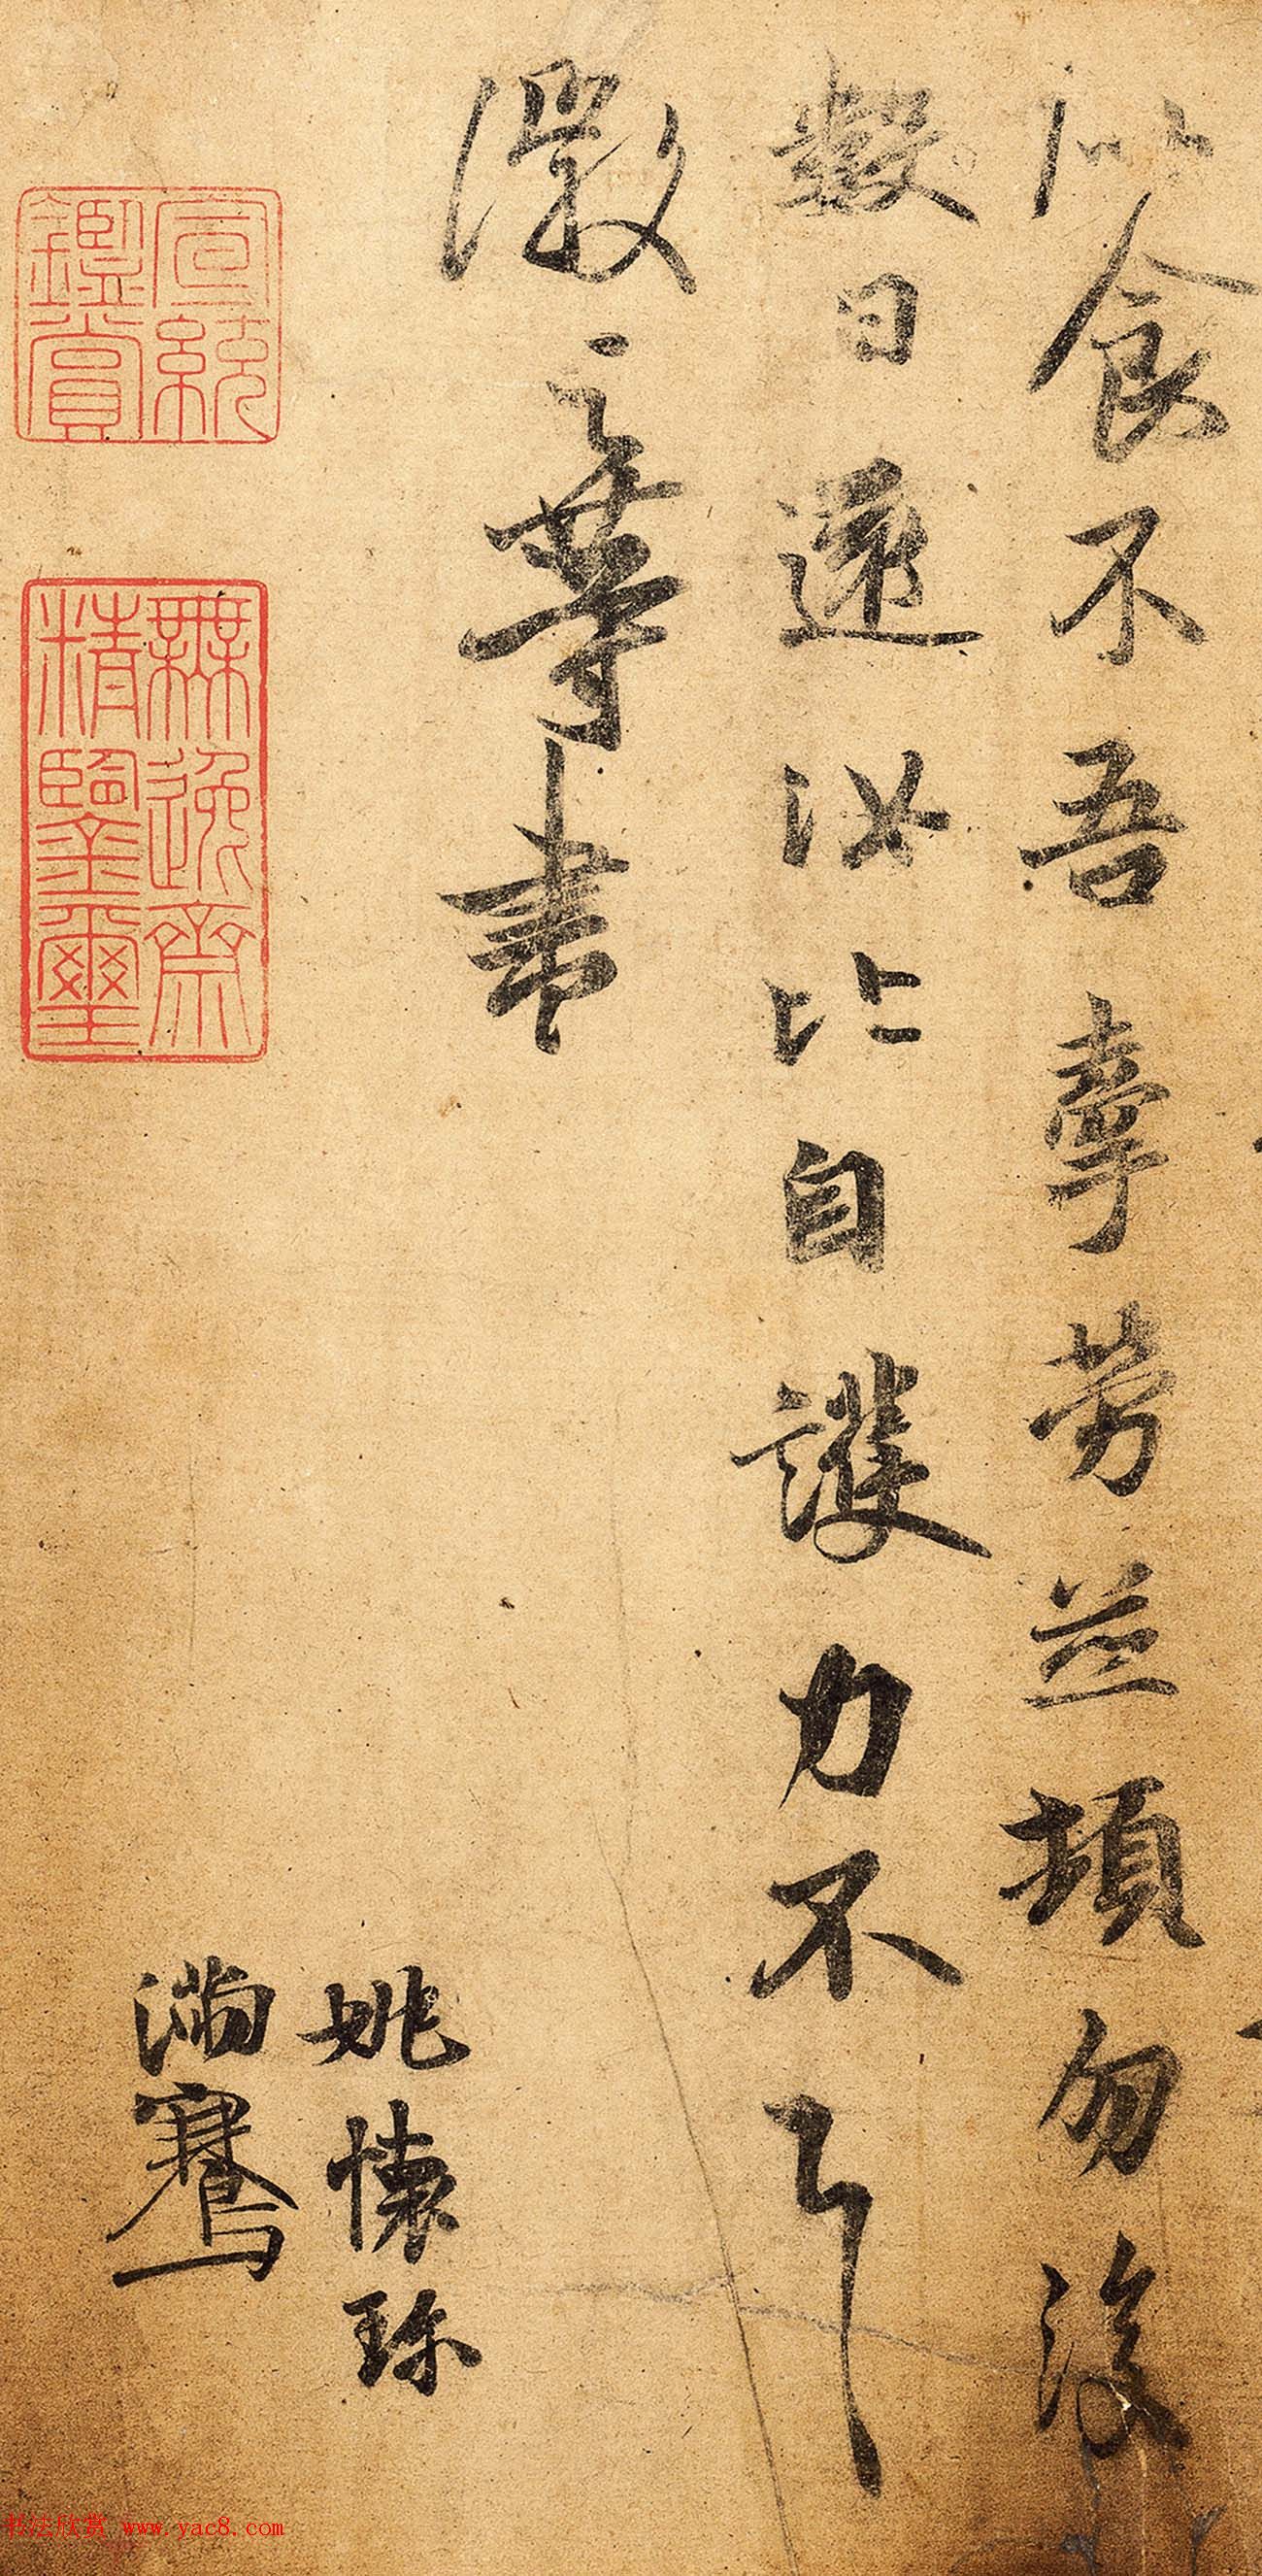 似食不吾牽勞並頓勿復
數日還汝比自護力不一一
徽之等書
姚懷珍
滿騫
宣統鑑賞
無逸齋精鑒璽
书法欣赏 www.yac8.com